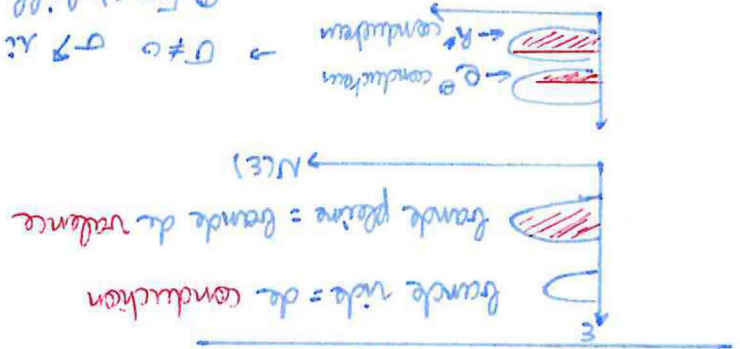 E
bande vide = de conduction
bande pleine = bande de valence
N(E)
→ e⊖ conduction
→ h+ conduction
→ σ ≠ 0